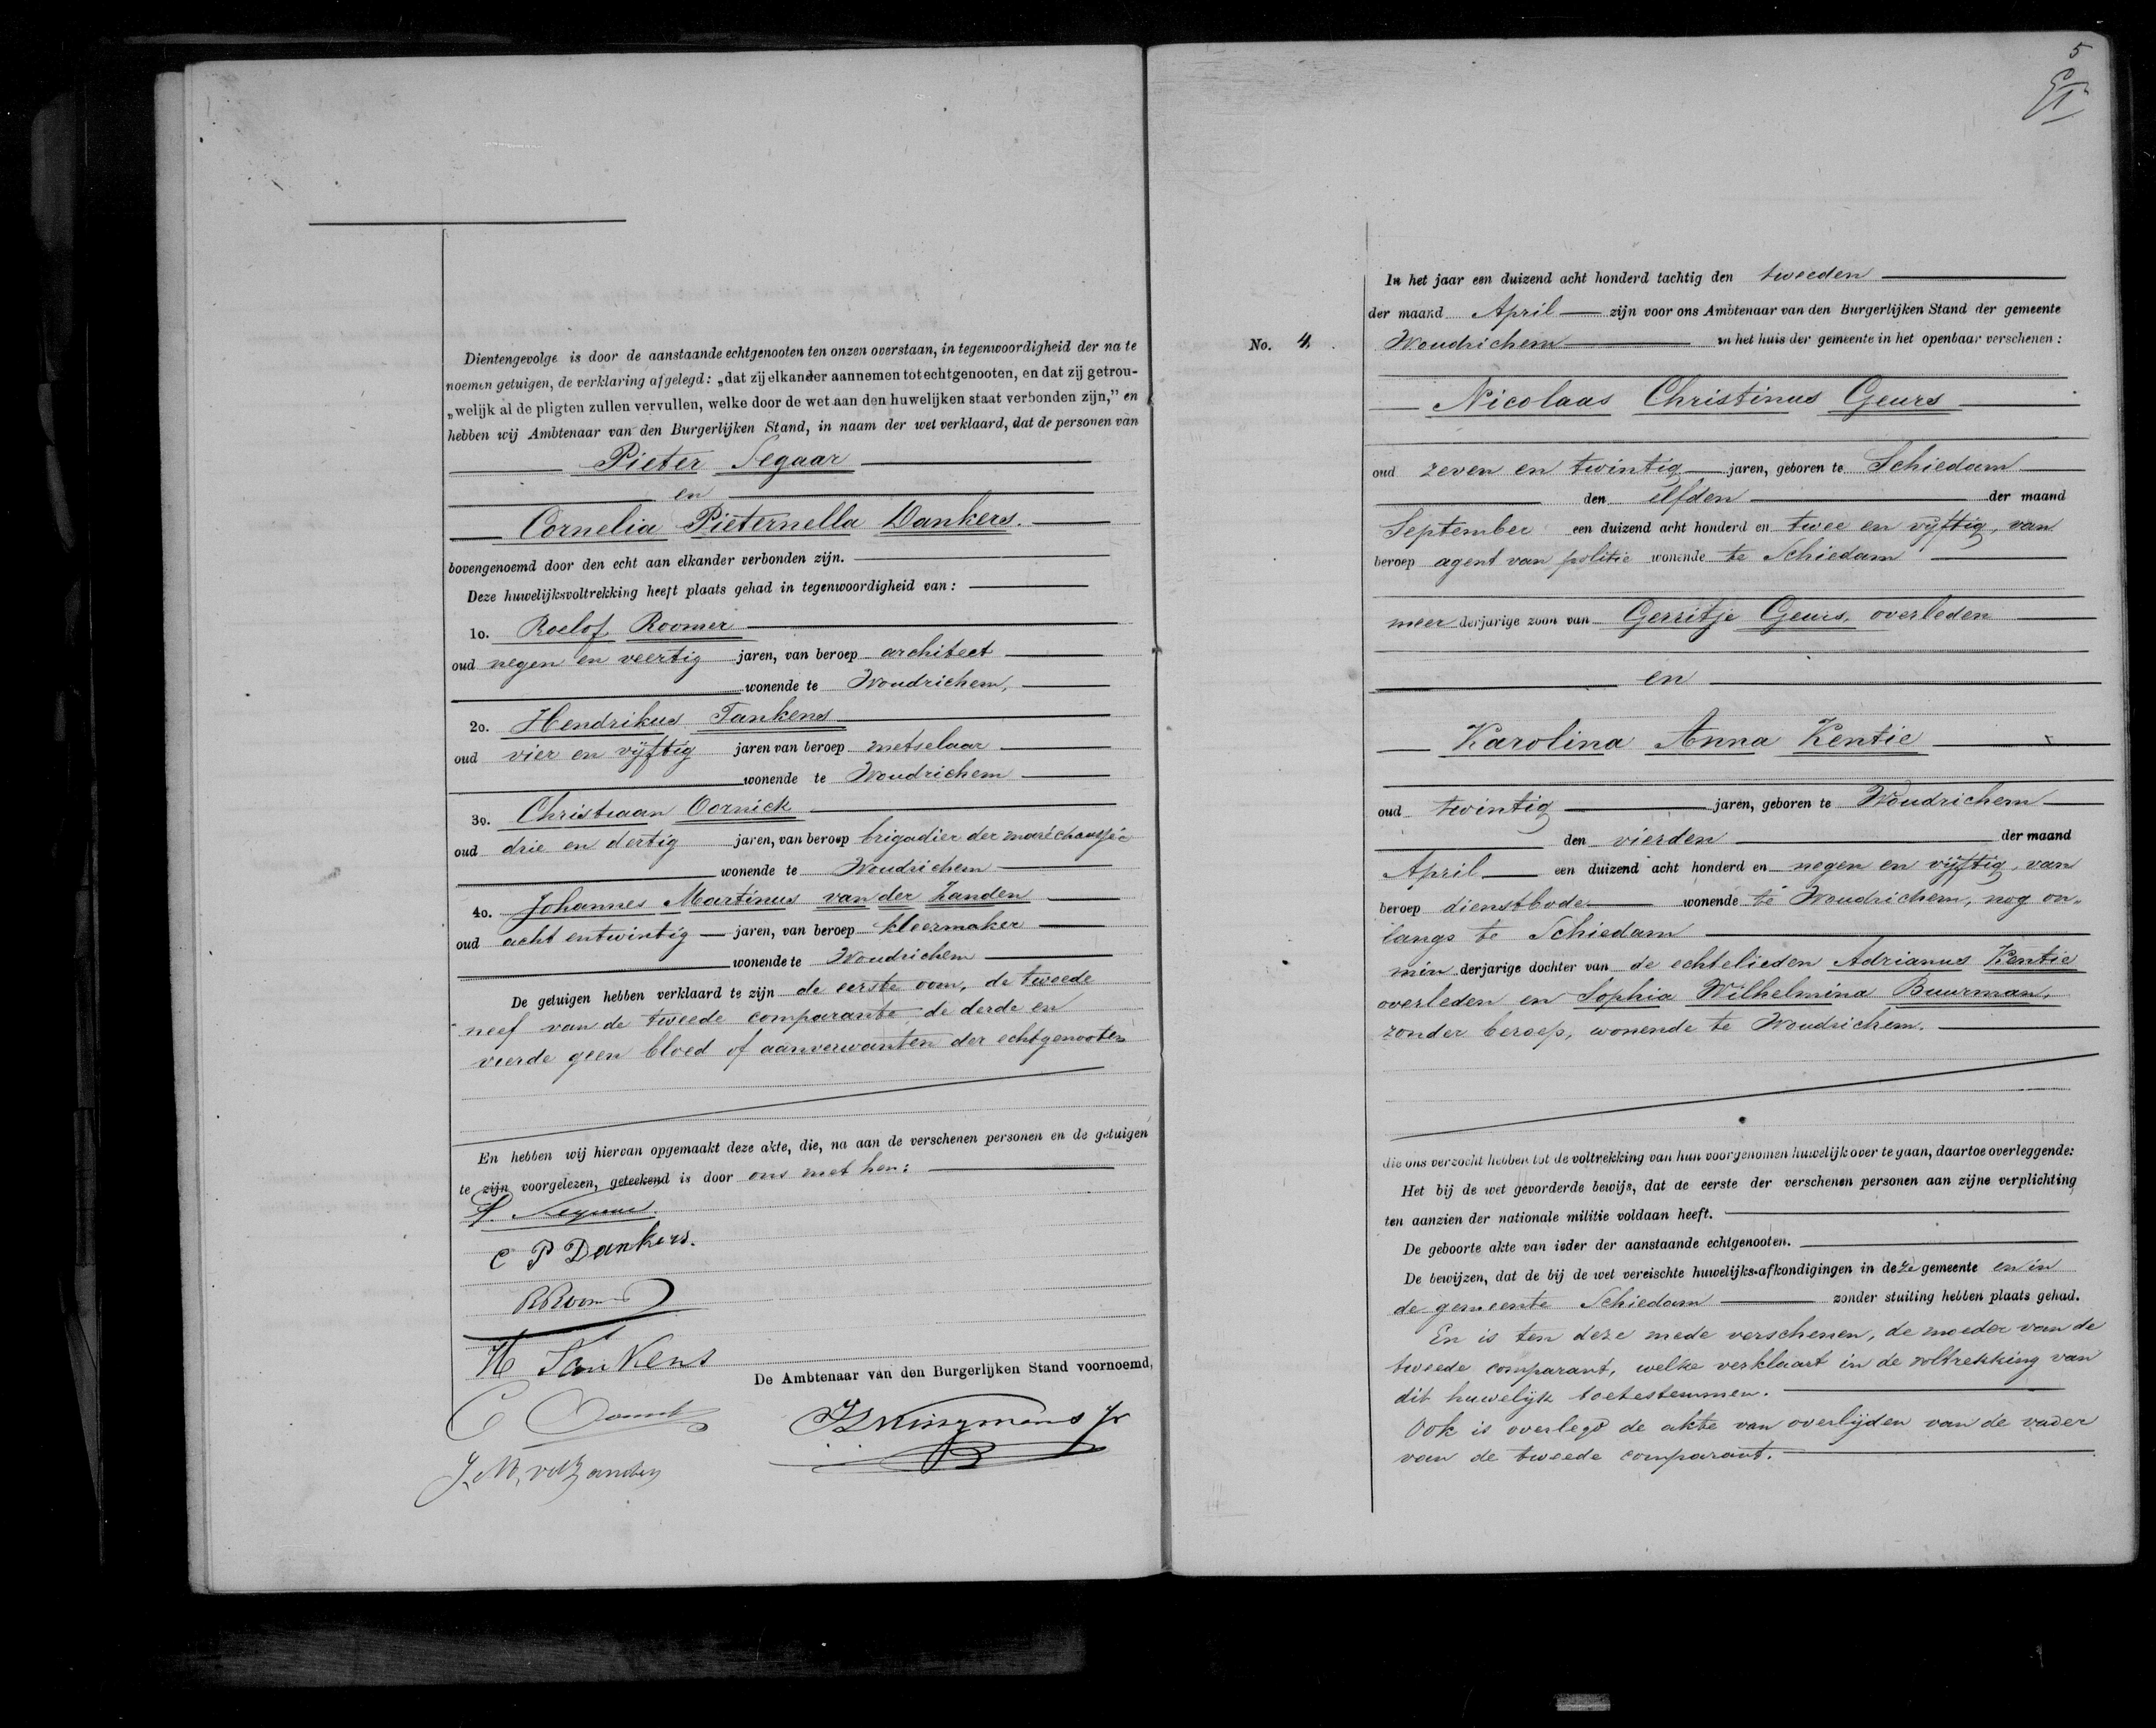 Dientengevolge is door de aanstaande echtgenooten ten onzen overstaan, in tegenwoordigheid der na te
noemen getuigen, de verklaring afgelegd: „dat zij elkander aannemen tot echtgenooten, en dat zij getrou-
„welijk al de pligten zullen vervullen, welke door de wet aan den huwelijken staat verbonden zijn,” en
hebben wij Ambtenaar van den Burgerlijken Stand, in naam der wet verklaard, dat de personen van
Pieter Segaar
en
Cornelia Pieternella Dankers.
bovengenoemd door den echt aan elkander verbonden zijn.
Deze huwelijksvoltrekking heeft plaats gehad in tegenwoordigheid van:
1o. Roelof Roomer
oud negen en veertig jaren, van beroep architect
wonende te Woudrichem,
2o. Hendrikus Tankens
oud vier en vijftig jaren van beroep metselaar
wonende te Woudrichem
3o. Christiaan Oornick
oud drie en dertig jaren, van beroep brigadier der maréchaussée
wonende te Woudrichem
4o. Johannes Martinus van der Zanden
oud acht en twintig jaren, van beroep kleermaker
wonende te Woudrichem
De getuigen hebben verklaard te zijn de eerste oom, de tweede
neef van de tweede comparante, de derde en
vierde geen bloed of aanverwanten der echtgenooten
En hebben wij hiervan opgemaakt deze akte, die, na aan de verschenen personen en de getuigen
te zijn voorgelezen, geteekend is door ons met hen:
P. Segaar.
C P Dankers.
R Roomer
H Tankens
De Ambtenaar van den Burgerlijken Stand voornoemd,
C
J. M. vd Zanden
5
No. 4.
In het jaar een duizend acht honderd tachtig den tweeden
der maand April zijn voor ons Ambtenaar van den Burgerlijken Stand der gemeente
Woudrichem in het huis der gemeente in het openbaar verschenen:
Nicolaas Christinus Geurs
oud zeven en twintig jaren, geboren te Schiedam
den elfden der maand
September een duizend acht honderd en twee en vijftig, van
beroep agent van politie wonende te Schiedam
meer derjarige zoon van Gerritje Geurs, overleden
en
Karolina Anna Kentie
oud twintig jaren, geboren te Woudrichem
den vierden der maand
April een duizend acht honderd en negen en vijftig, van
beroep dienstbode wonende te Woudrichem, nog on-
langs te Schiedam
min derjarige dochter van de echtelieden Adrianus Kentie
overleden en Sophia Wilhelmina Buurman,
zonder beroep, wonende te Woudrichem.
die ons verzocht hebben tot de voltrekking van hun voorgenomen huwelijk over te gaan, daartoe overleggende:
Het bij de wet gevorderde bewijs, dat de eerste der verschenen personen aan zijne verplichting
ten aanzien der nationale militie voldaan heeft.
De geboorte akte van ieder der aanstaande echtgenooten.
De bewijzen, dat de bij de wet vereischte huwelijks-afkondigingen in deze gemeente en in
de gemeente Schiedam zonder stuiting hebben plaats gehad.
En is ten deze mede verschenen, de moeder van de
tweede comparant, welke verklaart in de voltrekking van
dit huwelijk toetestemmen.
Ook is overlegd de akte van overlijden van de vader
van de tweede comparant.